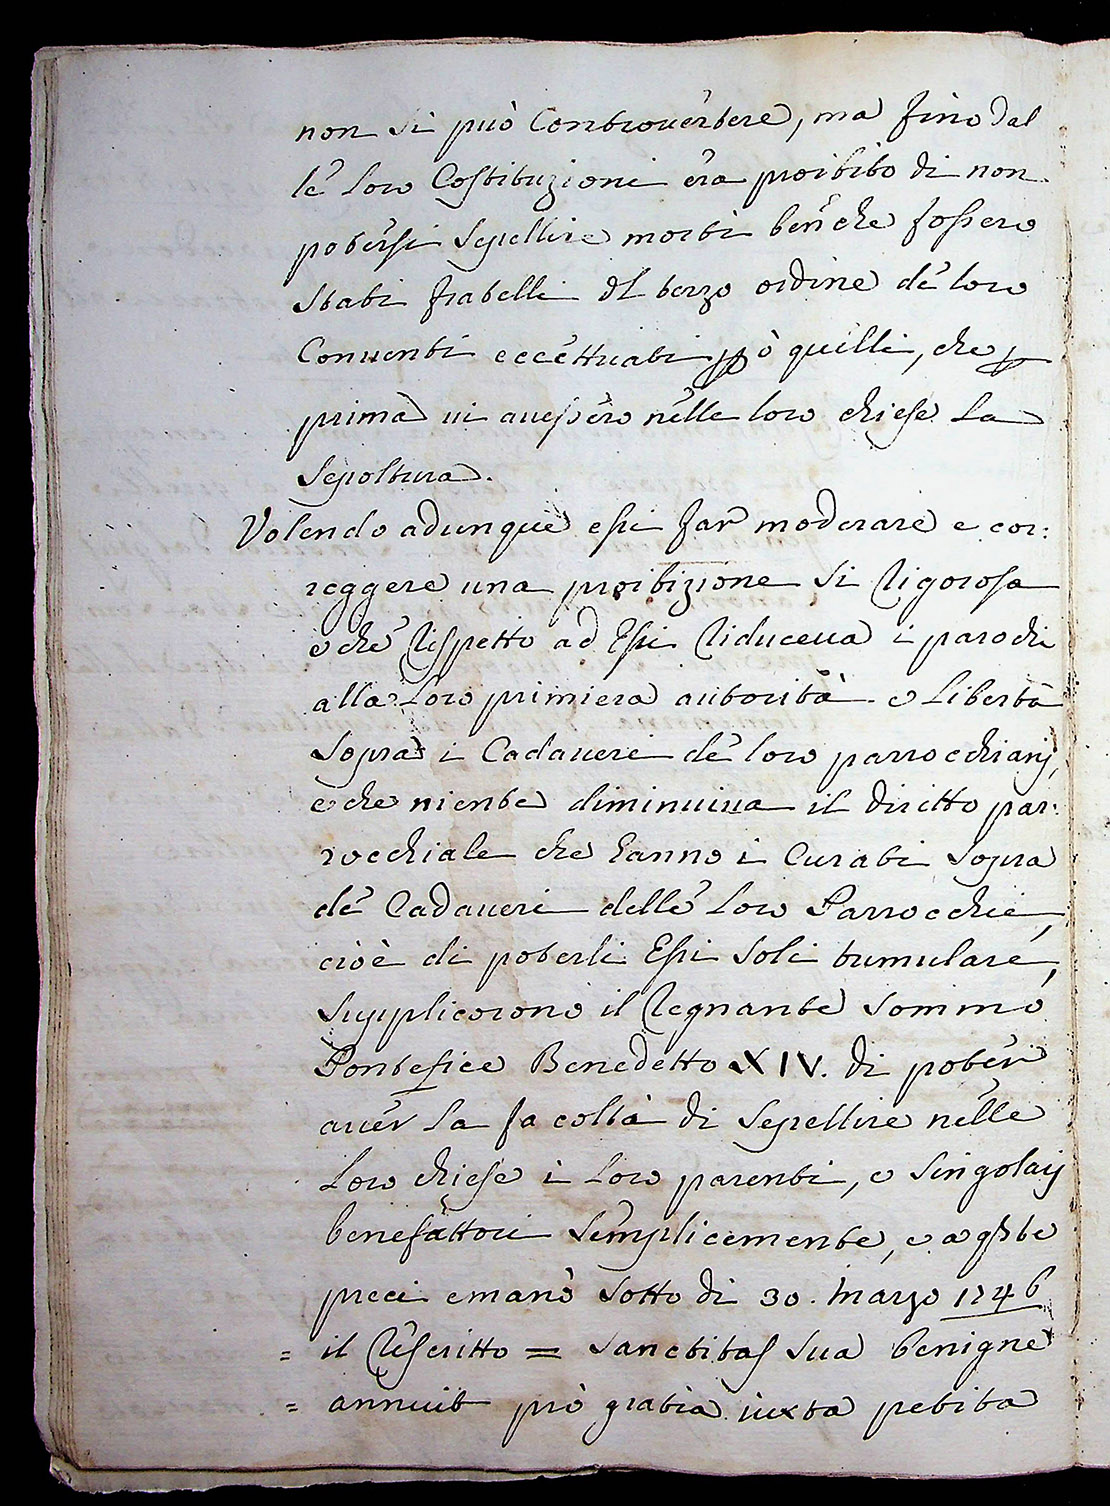 non si può Controvertere, ma fino dal
le loro Costituzioni era proibito di non
potersi sepellire morti ben che fossero
stati fratelli dl terzo ordine de loro
Conventi eccettuati pò quelli, che p
prima vi avessero nelle loro chiese la
sepoltura.
Volendo adunque essi far moderare e cor:
reggere una proibizione si rigorosa
e che rispetto ad Essi riduceva i parochi
alla loro primiera autorità e libertà
sopra i Cadaveri de loro parrocchianj,
e che niente diminuiva il diritto par:
rocchiale che hanno i Curati sopra
de Cadaveri delle loro Parrocchie,
cioè di poterli Essi soli tumulare,
supplicorono il regnante sommo
Pontefice Benedetto XIV. di poter
aver la facoltà di sepellire nelle
loro chiese i loro parenti, e singolarj
benefattori semplicemente, e a qste
preci emanò sotto di 30. marzo 1746
= il rescritto = sanctitas sua benigne
= annuit prò gratia iuxta petita